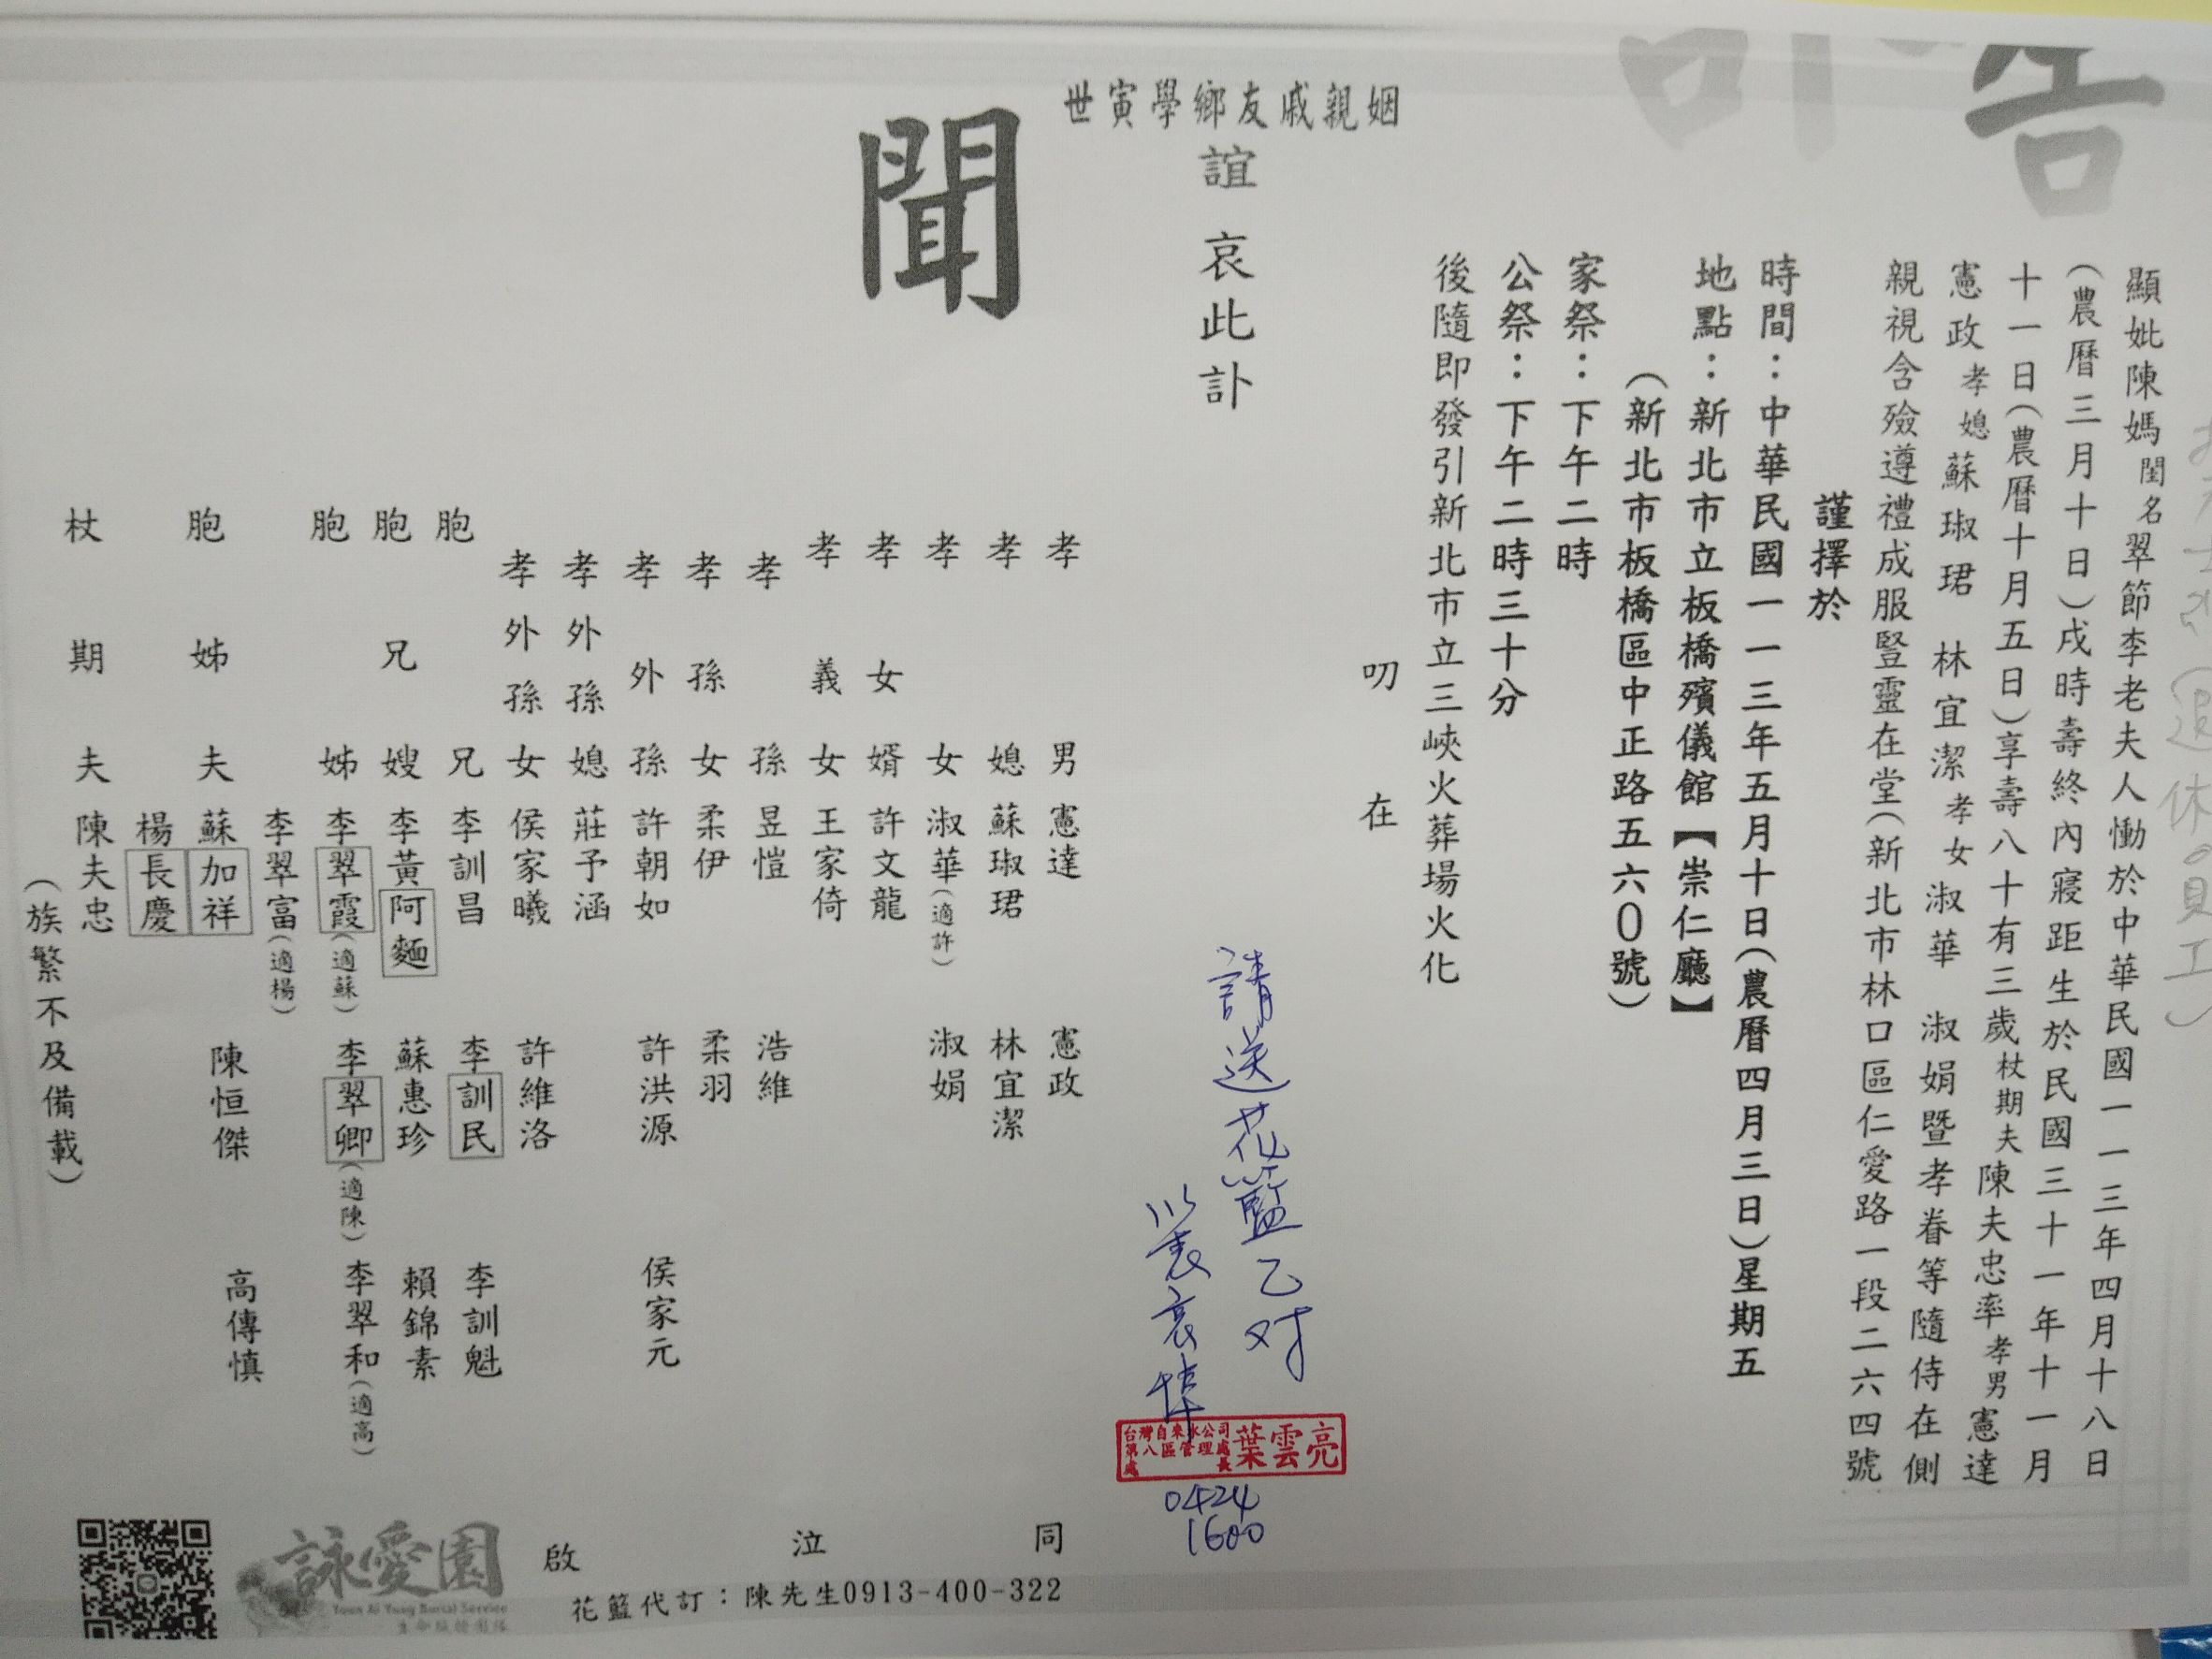 訃告
顯妣陳媽閨名翠節李老夫人慟於中華民國一一三年四月十八日
(農曆三月十日)戌時壽終內寢距生於民國三十一年十一月
十一日(農曆十月五日)享壽八十有三歲杖期夫陳夫忠率孝男憲達
憲政孝媳蘇琡珺 林宜潔孝女淑華 淑娟暨孝眷等隨侍在側
親視含殮遵禮成服豎靈在堂(新北市林口區仁愛路一段二六四號
謹擇於
時間:中華民國一一三年五月十日(農曆四月三日)星期五
地點:新北市立板橋殯儀館【崇仁廳】
(新北市板橋區中正路五六0號)
家祭:下午二時
公祭:下午二時三十分
後隨即發引新北市立三峽火葬場火化
叨在
世寅學鄉友戚親姻
誼哀此訃
聞
孝男 憲達 憲政
孝媳 蘇琡珺 林宜潔
孝女 淑華(適許) 淑娟
孝女婿 許文龍
孝義女 王家倚
孝孫 昱愷 浩維
孝孫女 柔伊 柔羽
孝外孫 許朝如 許洪源 侯家元
孝外孫媳 莊予涵
孝外孫女 侯家曦 許維洛
胞兄 李訓昌 李訓民 李訓魁
胞兄嫂 李黃阿麵 蘇惠珍 賴錦素
胞姊 李翠霞(適蘇) 李翠卿(適陳) 李翠和(適高)
李翠富(適楊)
胞姊夫 蘇加祥 陳恒傑 高傳慎
楊長慶
杖期夫 陳夫忠
(族繁不及備載)
同泣啟
請送花籃乙对
以表哀悼
台灣自來水公司
第八區管理處
處長
葉雲亮
0424
1600
花籃代訂:陳先生0913-400-322
詠愛園
Yuan Ai Yung Burial Service
退休員工)